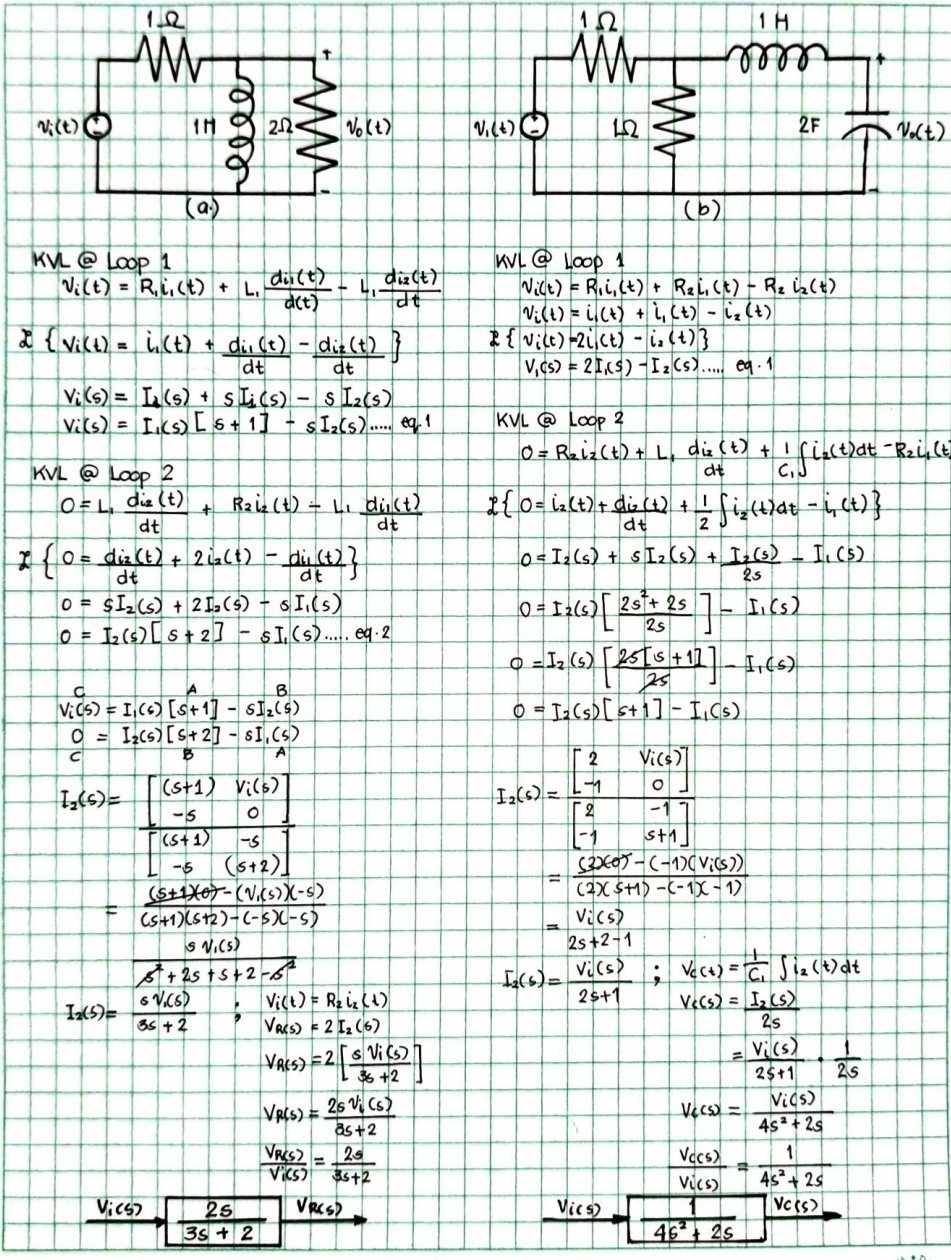 1 Ω
Vi(t)
1H
2Ω
+
Vo(t)
-
(a)
1 Ω
1 H
V1(t)
1Ω
2F
+
Vo(t)
-
(b)
KVL @ Loop 1
Vi(t) = R1i1(t) + L1 di1(t)/d(t) - L1 di2(t)/dt
ℒ { Vi(t) = i1(t) + di1(t)/dt - di2(t)/dt }
Vi(s) = I1(s) + sI1(s) - sI2(s)
Vi(s) = I1(s) [s+1] - sI2(s)..... eq.1
KVL @ Loop 2
0 = L1 di2(t)/dt + R2i2(t) - L1 di1(t)/dt
ℒ { 0 = di2(t)/dt + 2i2(t) - di1(t)/dt }
0 = sI2(s) + 2I2(s) - sI1(s)
0 = I2(s) [s+2] - sI1(s)..... eq.2
C A B
Vi(s) = I1(s) [s+1] - sI2(s)
0 = I2(s) [s+2] - sI1(s)
C B A
I2(s) = [(s+1) Vi(s)
-s 0]
[(s+1) -s
-s (s+2)]
= (s+1)(0) - (Vi(s))(-s)
(s+1)(s+2) - (-s)(-s)
s Vi(s)
s² + 2s + s + 2 - s²
I2(s) = s Vi(s)/3s + 2 ; Vi(t) = R2i2(t)
VR(s) = 2 I2(s)
VR(s) = 2 [s Vi(s)/3s + 2]
VR(s) = 2s Vi(s)/3s + 2
VR(s)/Vi(s) = 2s/3s+2
Vi(s) 2s/3s + 2 VR(s)
KVL @ Loop 1
Vi(t) = R1i1(t) + R2i1(t) - R2 i2(t)
Vi(t) = i1(t) + i1(t) - i2(t)
ℒ { Vi(t) = 2i1(t) - i2(t) }
V1(s) = 2I1(s) - I2(s)..... eq.1
KVL @ Loop 2
0 = R2i2(t) + L1 di2(t)/dt + 1/C1 ∫i2(t)dt - R2i1(t)
ℒ { 0 = i2(t) + di2(t)/dt + 1/2 ∫i2(t)dt - i1(t) }
0 = I2(s) + sI2(s) + I2(s)/2s - I1(s)
0 = I2(s) [2s² + 2s/2s] - I1(s)
0 = I2(s) [2s[s+1]/2s] - I1(s)
0 = I2(s) [s+1] - I1(s)
I2(s) = [2 Vi(s)
-1 0]
[2 -1
-1 s+1]
= (2)(0) - (-1)(Vi(s))
(2)(s+1) - (-1)(-1)
= Vi(s)
2s+2-1
I2(s) = Vi(s)/2s+1 ; Vc(t) = 1/C1 ∫i2(t)dt
Vc(s) = I2(s)/2s
= Vi(s)/2s+1 · 1/2s
Vc(s) = Vi(s)/4s² + 2s
Vc(s)/Vi(s) = 1/4s² + 2s
Vi(s) 1/4s² + 2s Vc(s)